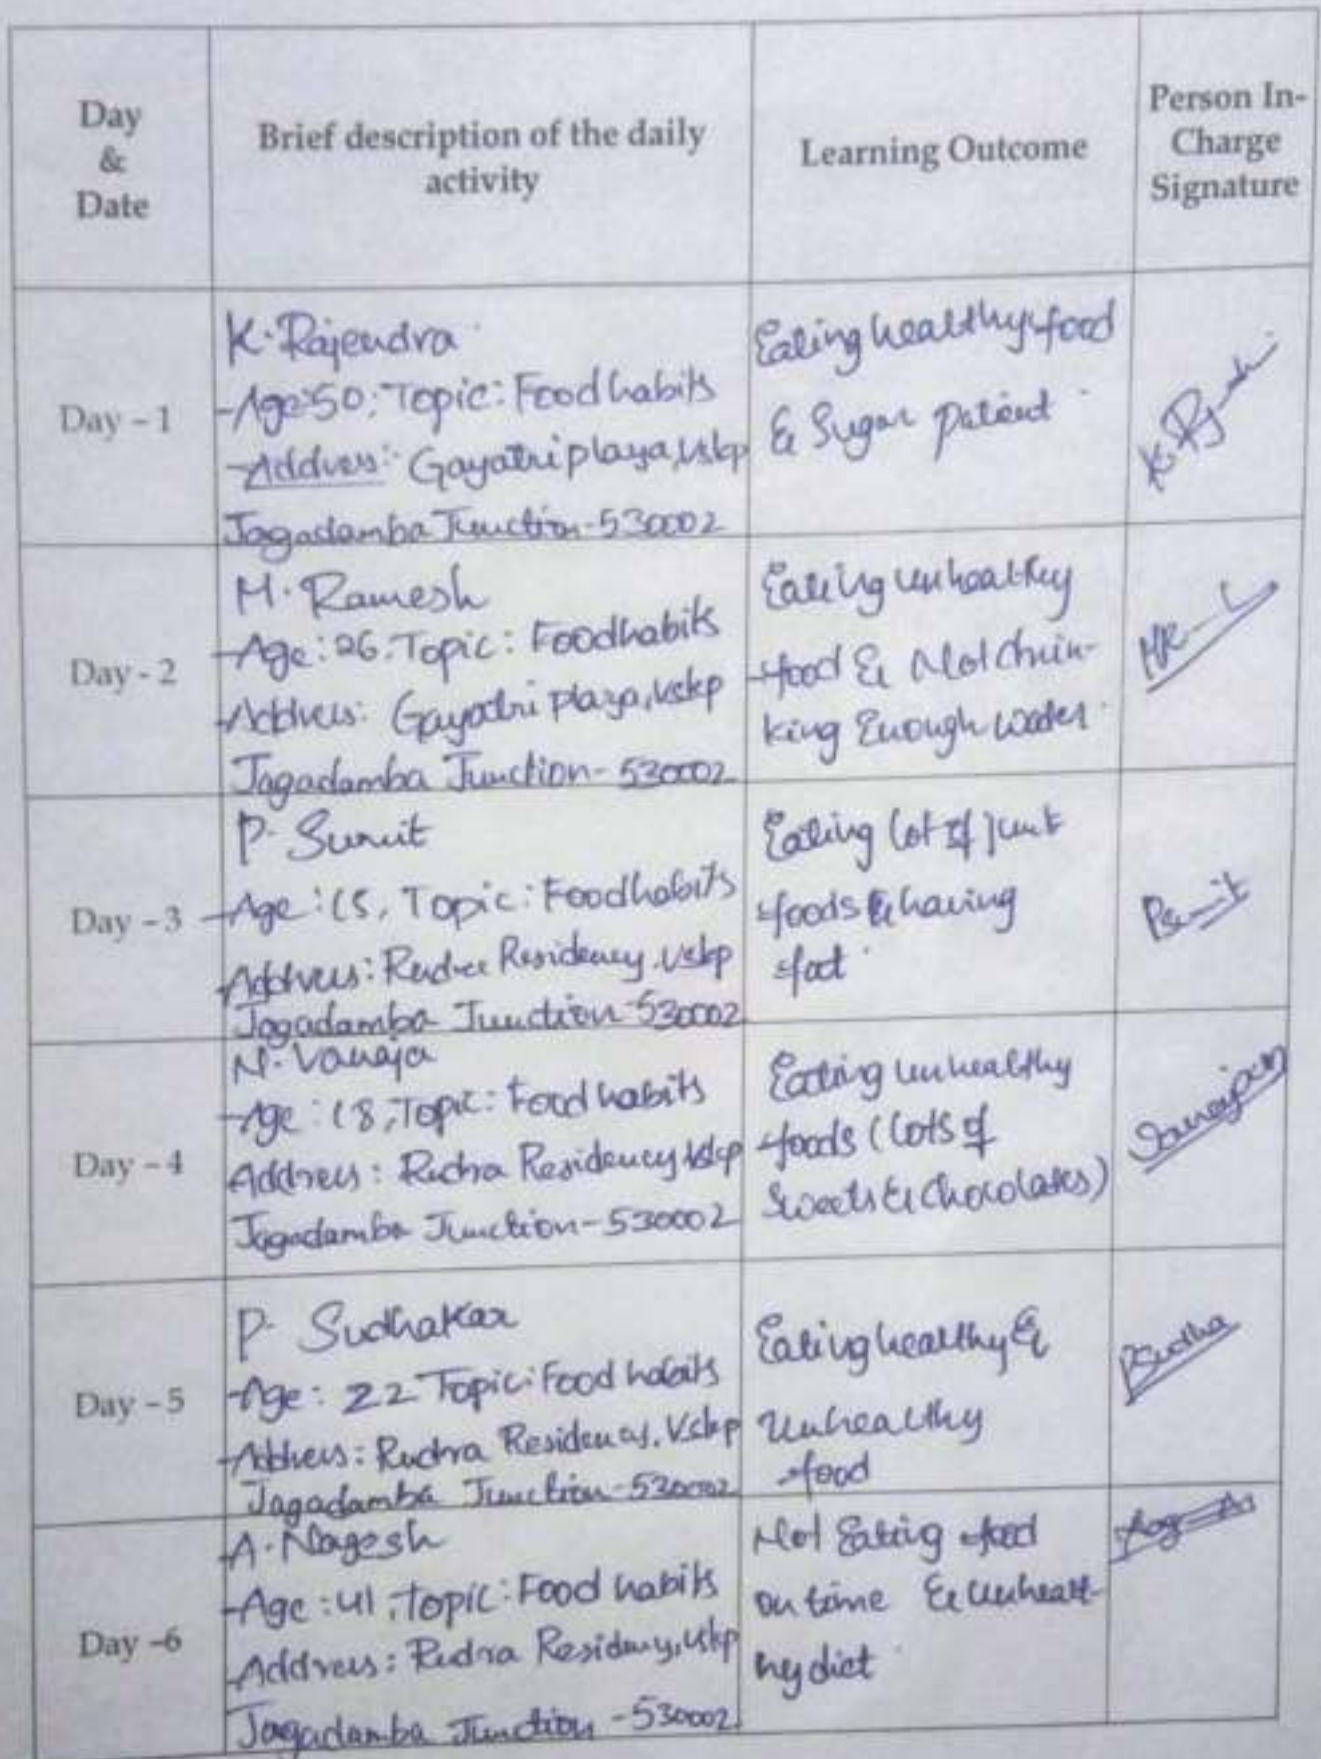 Day
&
Date
Brief description of the daily
activity
Learning Outcome
Person In-
Charge
Signature
Day - 1
K. Rajendra
Age:50; Topic: Food habits
Address: Gayatri plaza, vskp
Jagadamba Junction-530002
Eating healthy food
& Sugar patient
Day - 2
M. Ramesh
Age: 26. Topic: Foodhabits
Address: Gayatri plaza, vskp
Jagadamba Junction - 530002
Eating unhealthy
food & Not drin-
king Enough water
Day - 3
P. Sumit
Age: 15, Topic: Foodhabits
Address: Rudra Residency, vskp
Jagadamba Junction-530002
Eating lot of junk
foods & having
fat
Day - 4
N. Vanaja
Age: 18, Topic: Food habits
Address: Rudra Residency vskp
Jagadamba Junction - 530002
Eating unhealthy
foods (lots of
Sweets & Chocolates)
Vanaja
Day - 5
P. Sudhakar
Age: 22 Topic: Food habits
Address: Rudra Residency, Vskp
Jagadamba Junction-530002
Eating healthy &
Unhealthy
food
PSudha
Day -6
A. Nagesh
Age: 41, topic: Food habits
Address: Rudra Residency, vskp
Jagadamba Junction - 530002
Not Eating food
on time & Unhealt-
hy diet